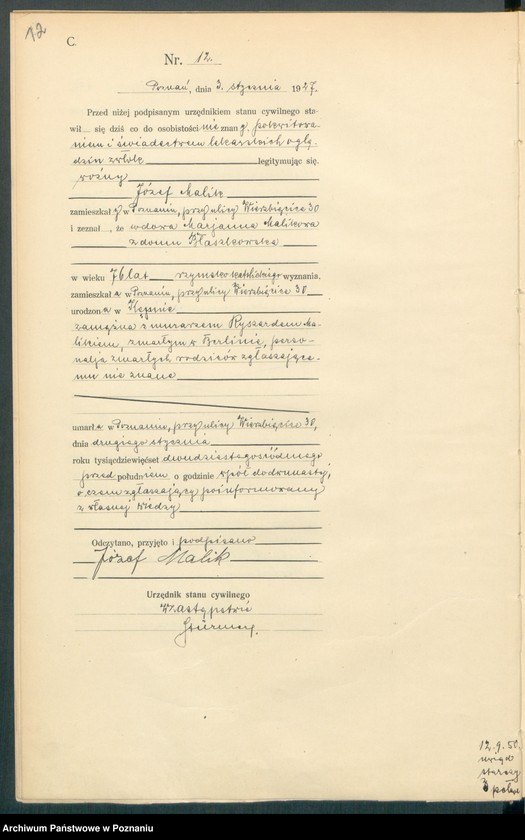 12
C.
Nr. 12.
Poznań, dnia 3. stycznia 1927.
Przed niżej podpisanym urzędnikiem stanu cywilnego sta-
wił się dziś co do osobistości nieznany, pokwitowa-
niem i świadectwem lekarskich oglę-
dzin zwłok legitymując się.
woźny
Józef Malik
zamieszkały w Poznaniu, przy ulicy Wierzbięcice 30
i zeznał, że wdowa Marjanna Malikowa
z domu Błaszkowska
w wieku 76 lat rzymsko-katolickiego wyznania.
zamieszkała w Poznaniu, przy ulicy Wierzbięcice 30
urodzona w Kępnie
zamężna z murarzem Ryszardem Ma-
likiem, zmarłym w Berlinie, perso-
nalja zmarłych rodziców zgłaszające-
mu nie znane
umarła w Poznaniu, przy ulicy Wierzbięcice 30,
dnia drugiego stycznia
roku tysiącdziewięćset dwudziestegosiódmego
przed południem o godzinie wpół do dwunastej,
o czem zgłaszający poinformowany
z własnej wiedzy
Odczytano, przyjęto i podpisano
Józef Malik
Urzędnik stanu cywilnego
W zastępstwie
12.9.50.
urząd
starszy
Archiwum Państwowe w Poznaniu